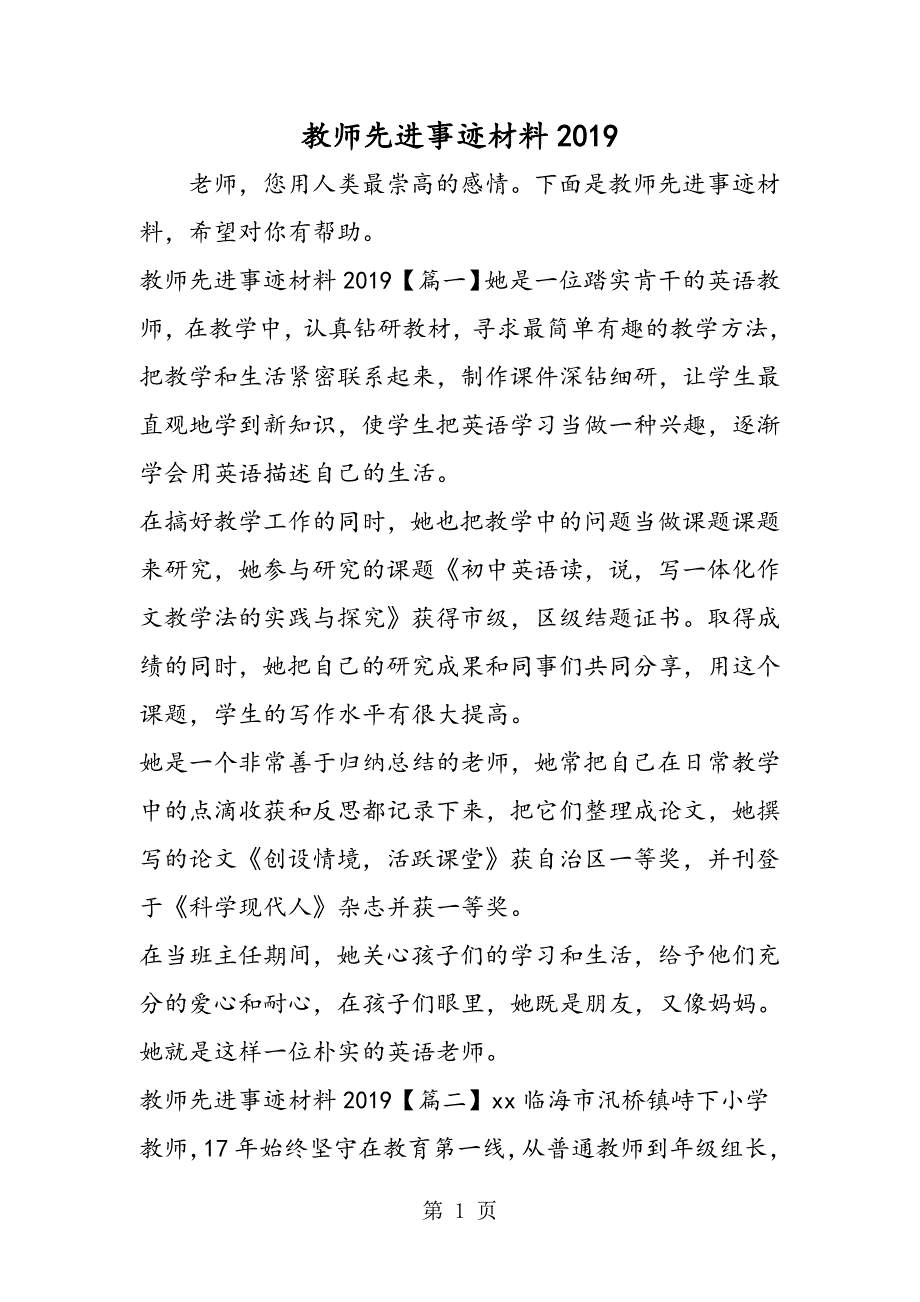 教师先进事迹材料2019
老师，您用人类最崇高的感情。下面是教师先进事迹材
料，希望对你有帮助。
教师先进事迹材料2019【篇一】她是一位踏实肯干的英语教
师，在教学中，认真钻研教材，寻求最简单有趣的教学方法，
把教学和生活紧密联系起来，制作课件深钻细研，让学生最
直观地学到新知识，使学生把英语学习当做一种兴趣，逐渐
学会用英语描述自己的生活。
在搞好教学工作的同时，她也把教学中的问题当做课题课题
来研究，她参与研究的课题《初中英语读，说，写一体化作
文教学法的实践与探究》获得市级，区级结题证书。取得成
绩的同时，她把自己的研究成果和同事们共同分享，用这个
课题，学生的写作水平有很大提高。
她是一个非常善于归纳总结的老师，她常把自己在日常教学
中的点滴收获和反思都记录下来，把它们整理成论文，她撰
写的论文《创设情境，活跃课堂》获自治区一等奖，并刊登
于《科学现代人》杂志并获一等奖。
在当班主任期间，她关心孩子们的学习和生活，给予他们充
分的爱心和耐心，在孩子们眼里，她既是朋友，又像妈妈。
她就是这样一位朴实的英语老师。
教师先进事迹材料2019【篇二】xx临海市汛桥镇峙下小学
教师，17年始终坚守在教育第一线，从普通教师到年级组长，
第 1 页